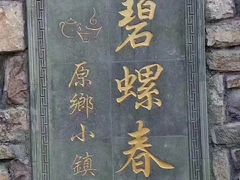 碧螺春
原鄉小鎮